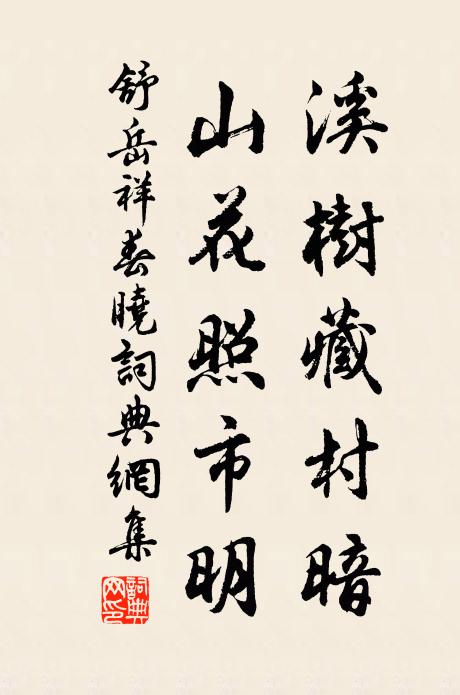 溪樹藏村暗
山花照市明
舒岳祥春曉詞典網集
詞典網印